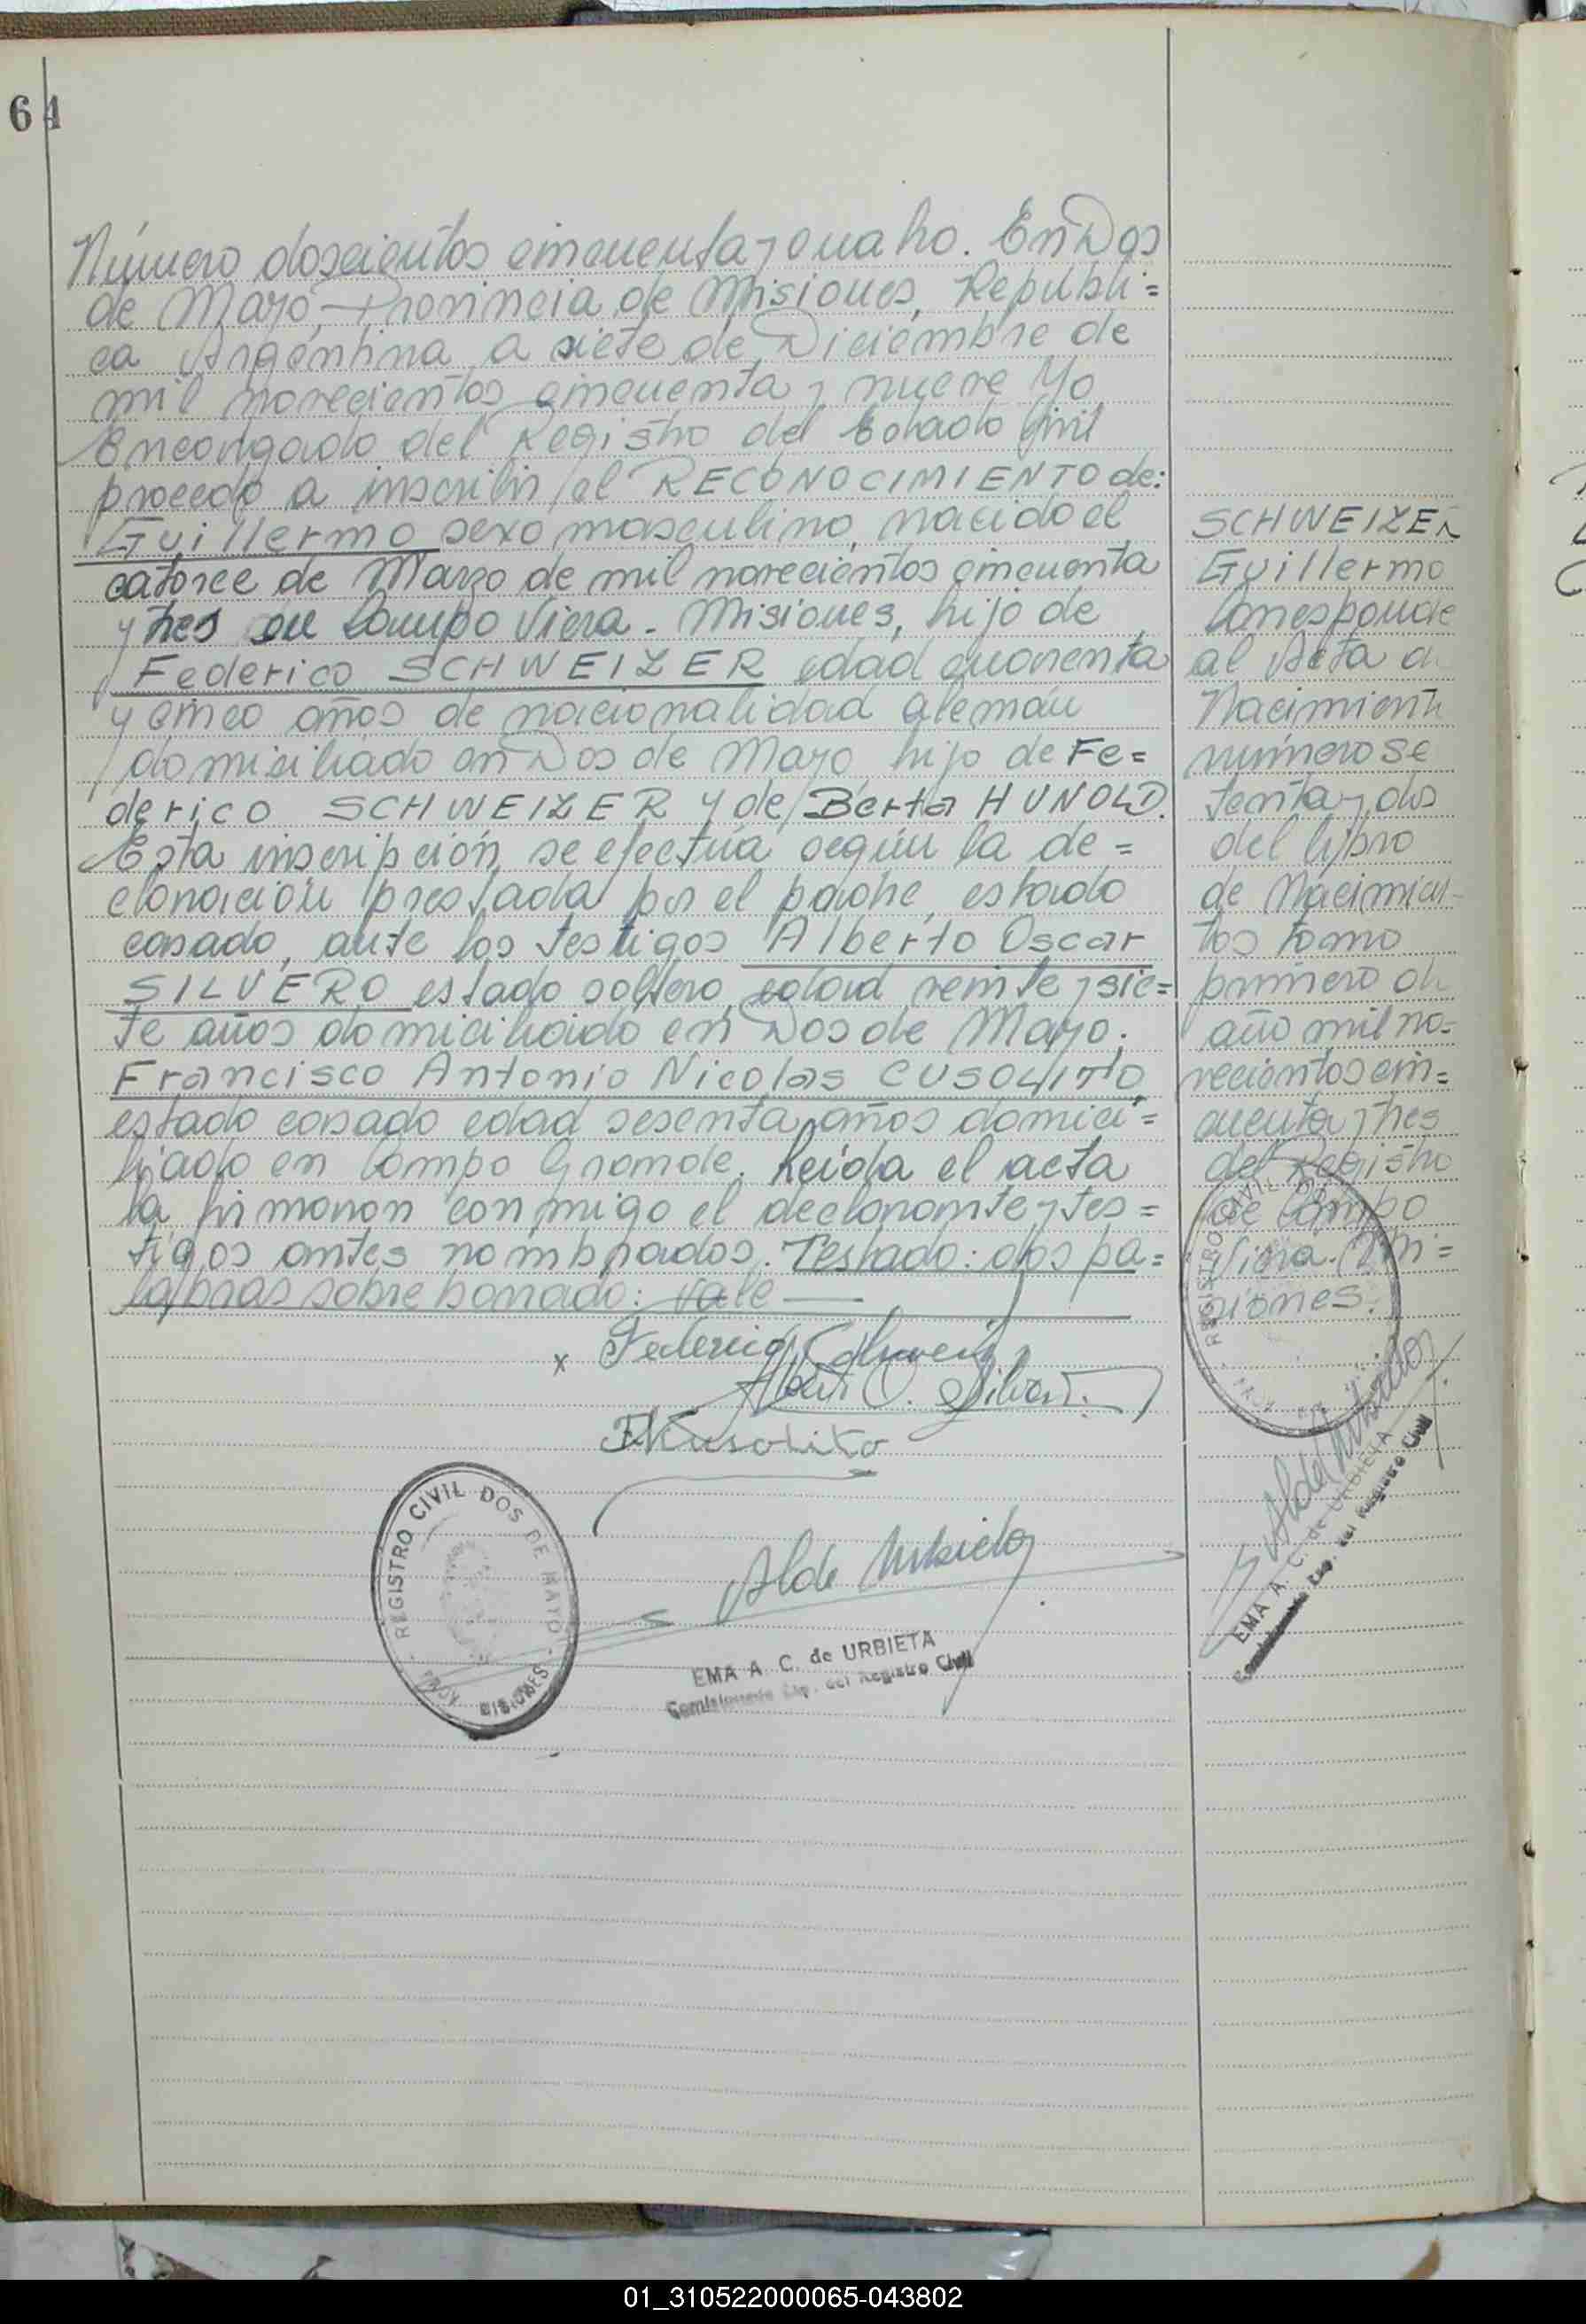 64
Número doscientos cincuenta y cuatro. En Dos
de Mayo, Provincia de Misiones, Repúbli=
ca Argentina, a siete de Diciembre de
mil novecientos cincuenta y nueve Yo
Encargado del Registro del Estado Civil
procedo a inscribir el RECONOCIMIENTO de:
Guillermo sexo masculino, nacido el
catorce de Marzo de mil novecientos cincuenta
y tres en Campo Viera. Misiones, hijo de
Federico SCHWEIZER edad cuarenta
y cinco años de nacionalidad alemán
domiciliado en Dos de Mayo hijo de Fe=
derico SCHWEIZER y de Berta HUNOLD.
Esta inscripción se efectúa según la de=
claración prestada por el padre, estado
casado, ante los testigos Alberto Oscar
SILVERO estado soltero, edad veinte y sie=
te años domiciliado en Dos de Mayo;
Francisco Antonio Nicolas CUSOLITO
estado casado edad sesenta años domici=
liado en Campo Grande. Leída el acta
la firmaron conmigo el declarante y tes=
tigos antes nombrados. Testado: dos pa=
labras sobre borrado: vale
x Federico Schweizer
Albert O. Silvero
FNCusolito
REGISTRO CIVIL DOS DE MAYO
MISIONES
EMA A. C. de URBIETA
del Registro Civil
SCHWEIZER
Guillermo
Corresponde
al Acta de
Nacimiento
número se
tenta y dos
del libro
de Nacimien-
tos tomo
primero de
año mil no=
vecientos cin=
cuenta y tres
del Registro
de Campo
Viera. Mi=
siones.
REGISTRO CIVIL
EMA A. C. de URBIETA
del Registro Civil
01_310522000065-043802